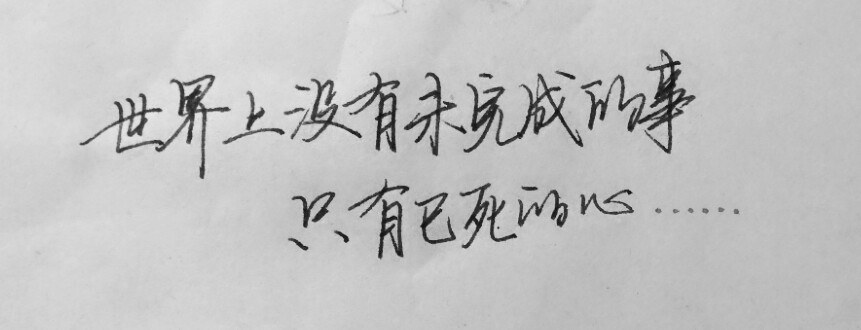 世界上没有未完成的事
只有已死的心……